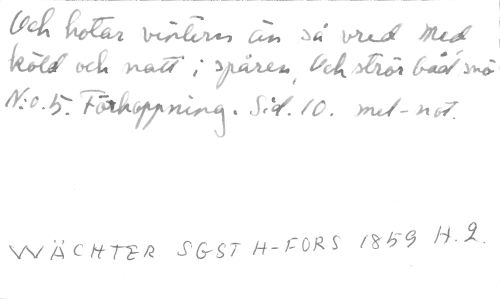 Och hotar vintern än så vred med
köld och natt i spåren, Och strör båd' snö
N:o. 5. Förhoppning. Sid. 10. mel-not.
WÄCHTER SGST H-FORS 1859 H.2.